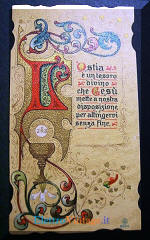 L'Ostia
è un tesoro
divino
che Gesù
mette a nostra
disposizione
per attingervi
senza fine.